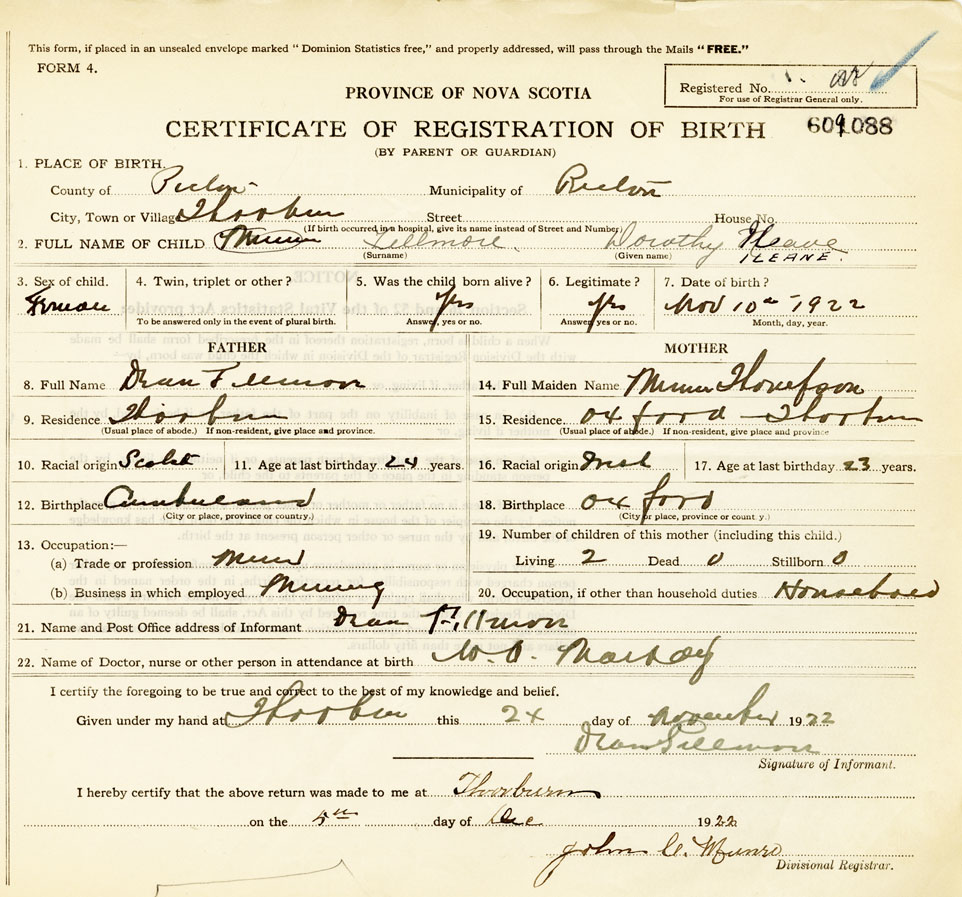 This form, if placed in an unsealed envelope marked "Dominion Statistics free," and properly addressed, will pass through the Mails "FREE."
FORM 4.
Registered No.
For use of Registrar General only.
PROVINCE OF NOVA SCOTIA
CERTIFICATE OF REGISTRATION OF BIRTH 609088
(BY PARENT OR GUARDIAN)
1. PLACE OF BIRTH.
County of Pictou Municipality of Pictou
City, Town or Village Thorburn Street House No.
(If birth occurred in a hospital, give its name instead of Street and Number)
2. FULL NAME OF CHILD Fillmore Dorothy Ileane
(Surname) (Given name) ILEANE.
3. Sex of child. 4. Twin, triplet or other? 5. Was the child born alive? 6. Legitimate? 7. Date of birth?
Female Yes Yes Nov 10th 1922
To be answered only in the event of plural birth. Answer, yes or no. Answer, yes or no. Month, day, year.
FATHER MOTHER
8. Full Name Dean Fillmore 14. Full Maiden Name Minnie Thompson
9. Residence Thorburn 15. Residence. Oxford Thorburn
(Usual place of abode.) If non-resident, give place and province. (Usual place of abode.) If non-resident, give place and province
10. Racial origin Scotch 11. Age at last birthday 24 years. 16. Racial origin Irish 17. Age at last birthday 23 years.
12. Birthplace Cumberland 18. Birthplace Oxford
(City or place, province or country.) (City or place, province or country.)
13. Occupation:— 19. Number of children of this mother (including this child.)
(a) Trade or profession Miner Living 2 Dead 0 Stillborn 0
(b) Business in which employed Mining 20. Occupation, if other than household duties
21. Name and Post Office address of Informant Dean Fillmore
22. Name of Doctor, nurse or other person in attendance at birth
I certify the foregoing to be true and correct to the best of my knowledge and belief.
Given under my hand at Thorburn this 24 day of November 1922
Dean Fillmore
Signature of Informant.
I hereby certify that the above return was made to me at Thorburn
on the 5th day of Dec 1922
John C. Munro
Divisional Registrar.